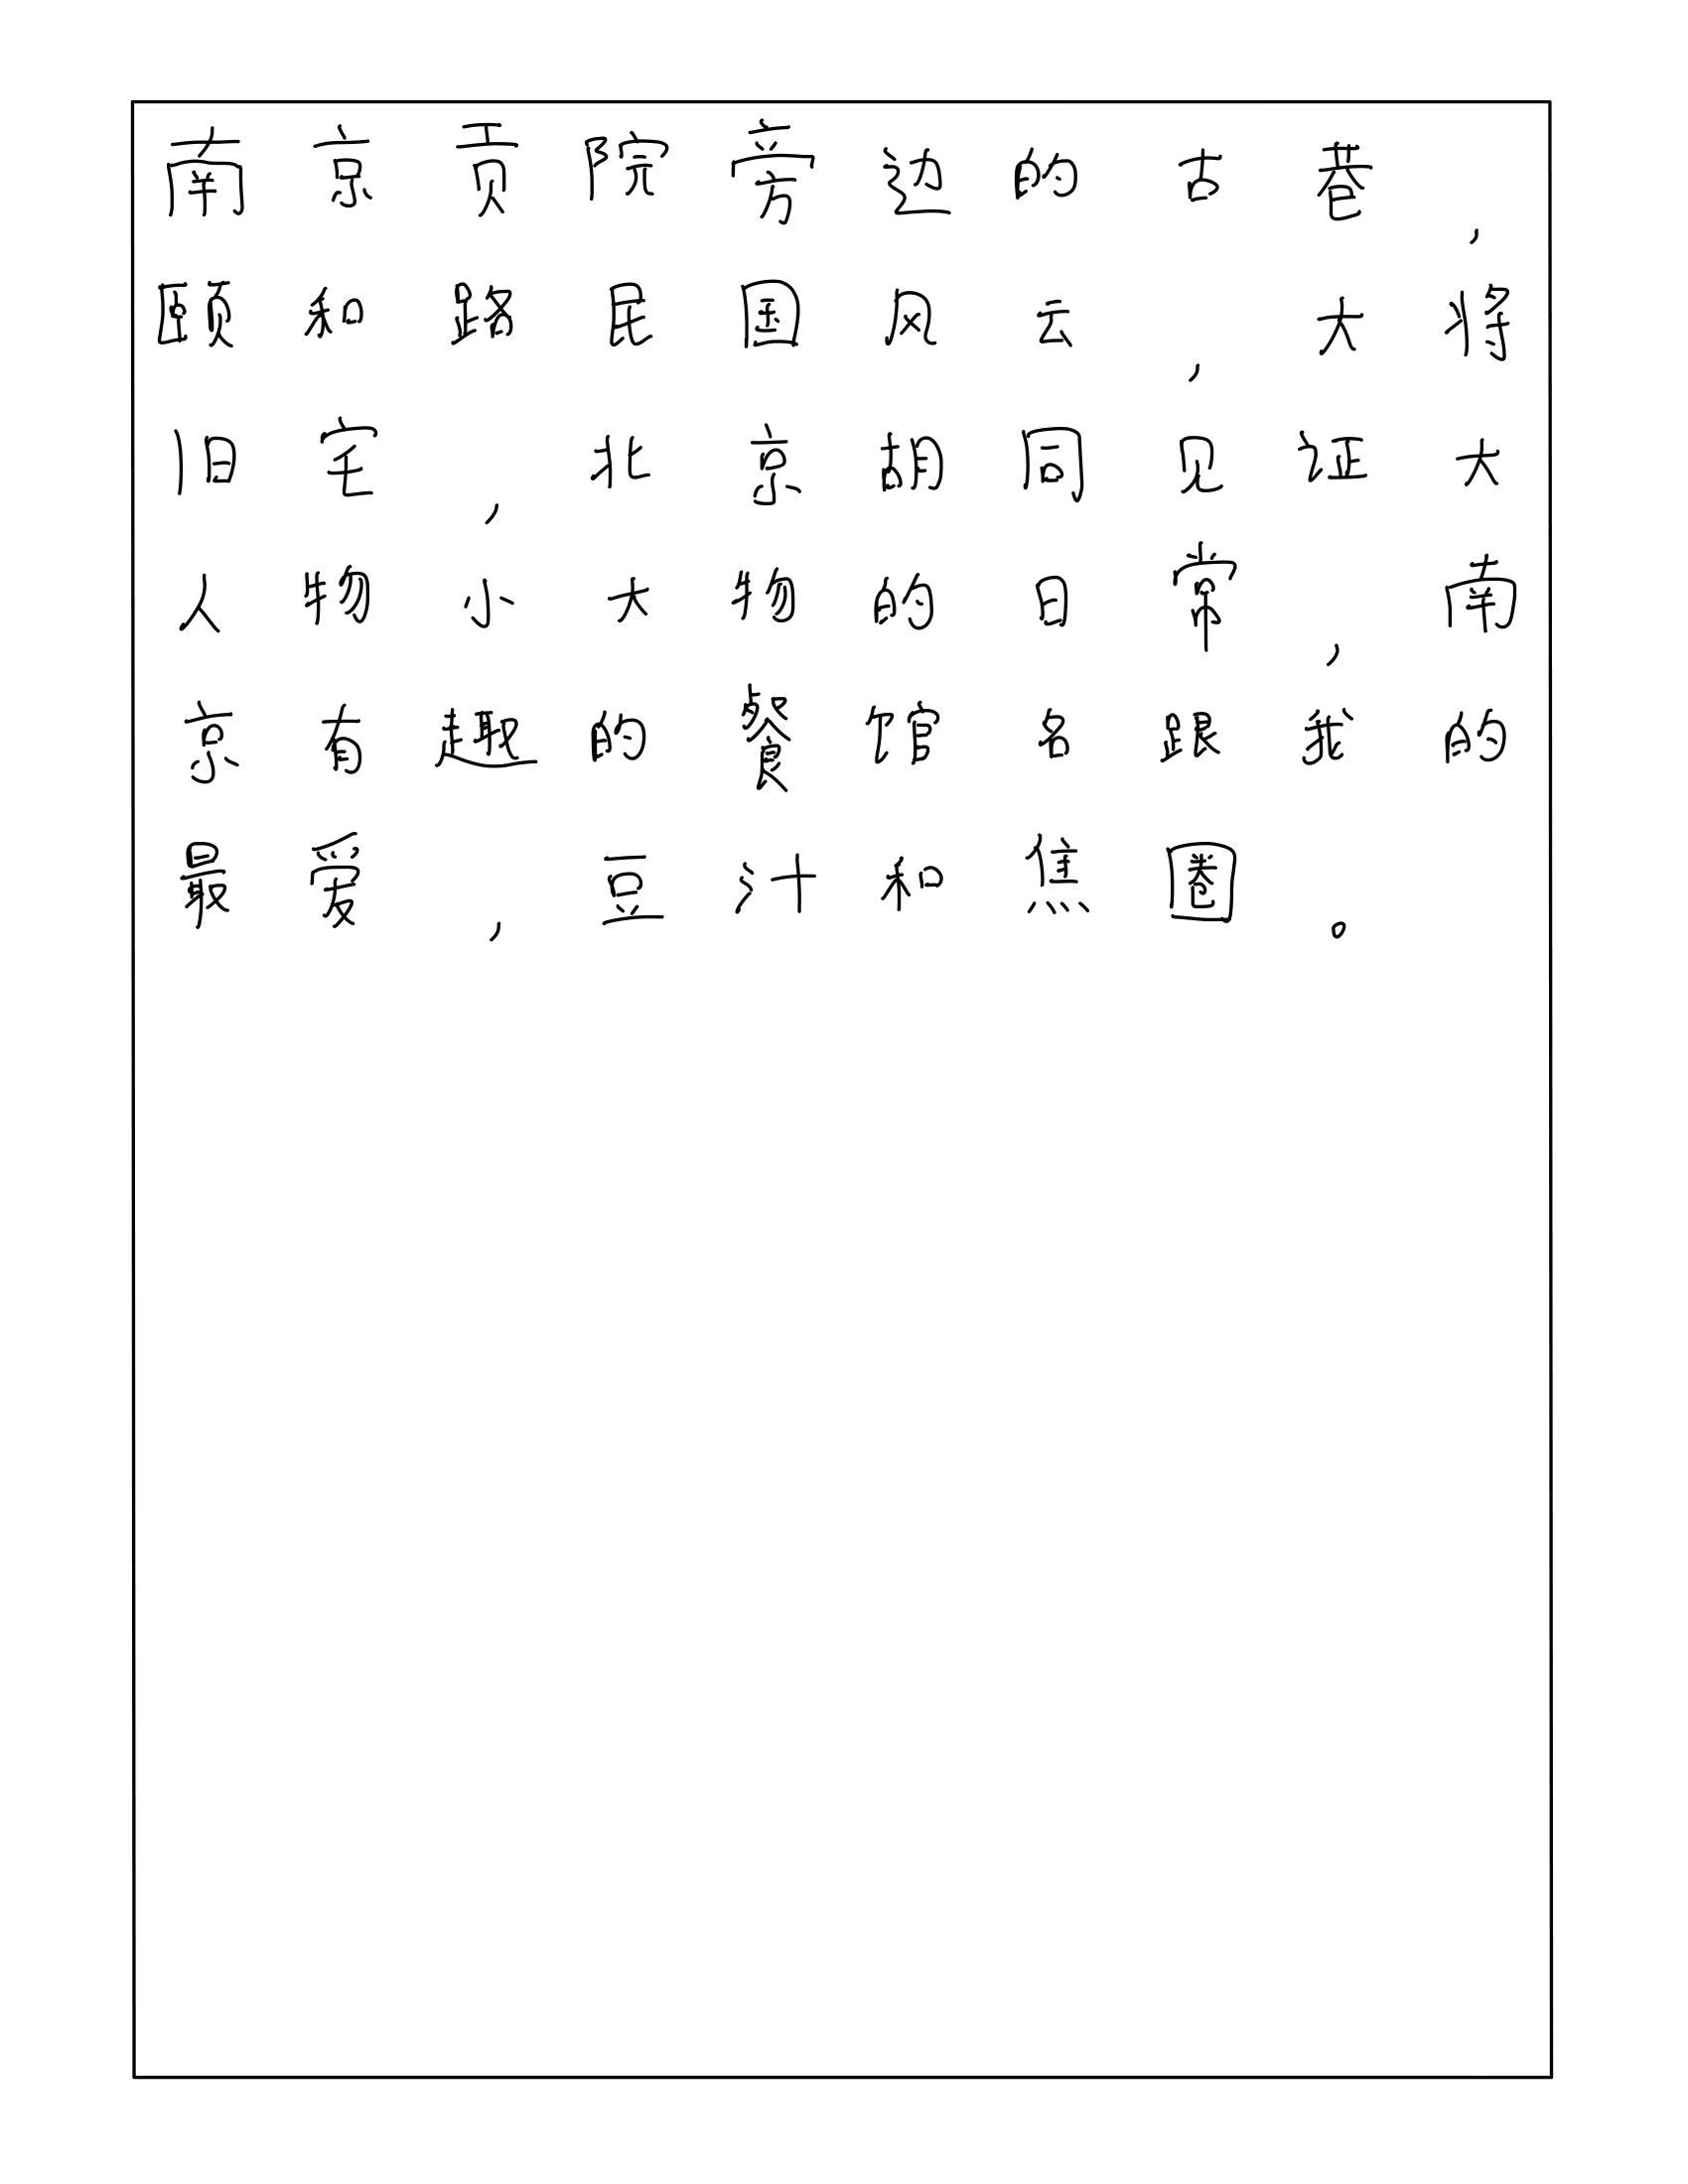 南京贡院旁边的古巷，
颐和路民国风云，大将
旧宅，北京胡同见证大
人物小大物的日常，南
京有趣的餐馆名跟我的
最爱，豆汁和焦圈。